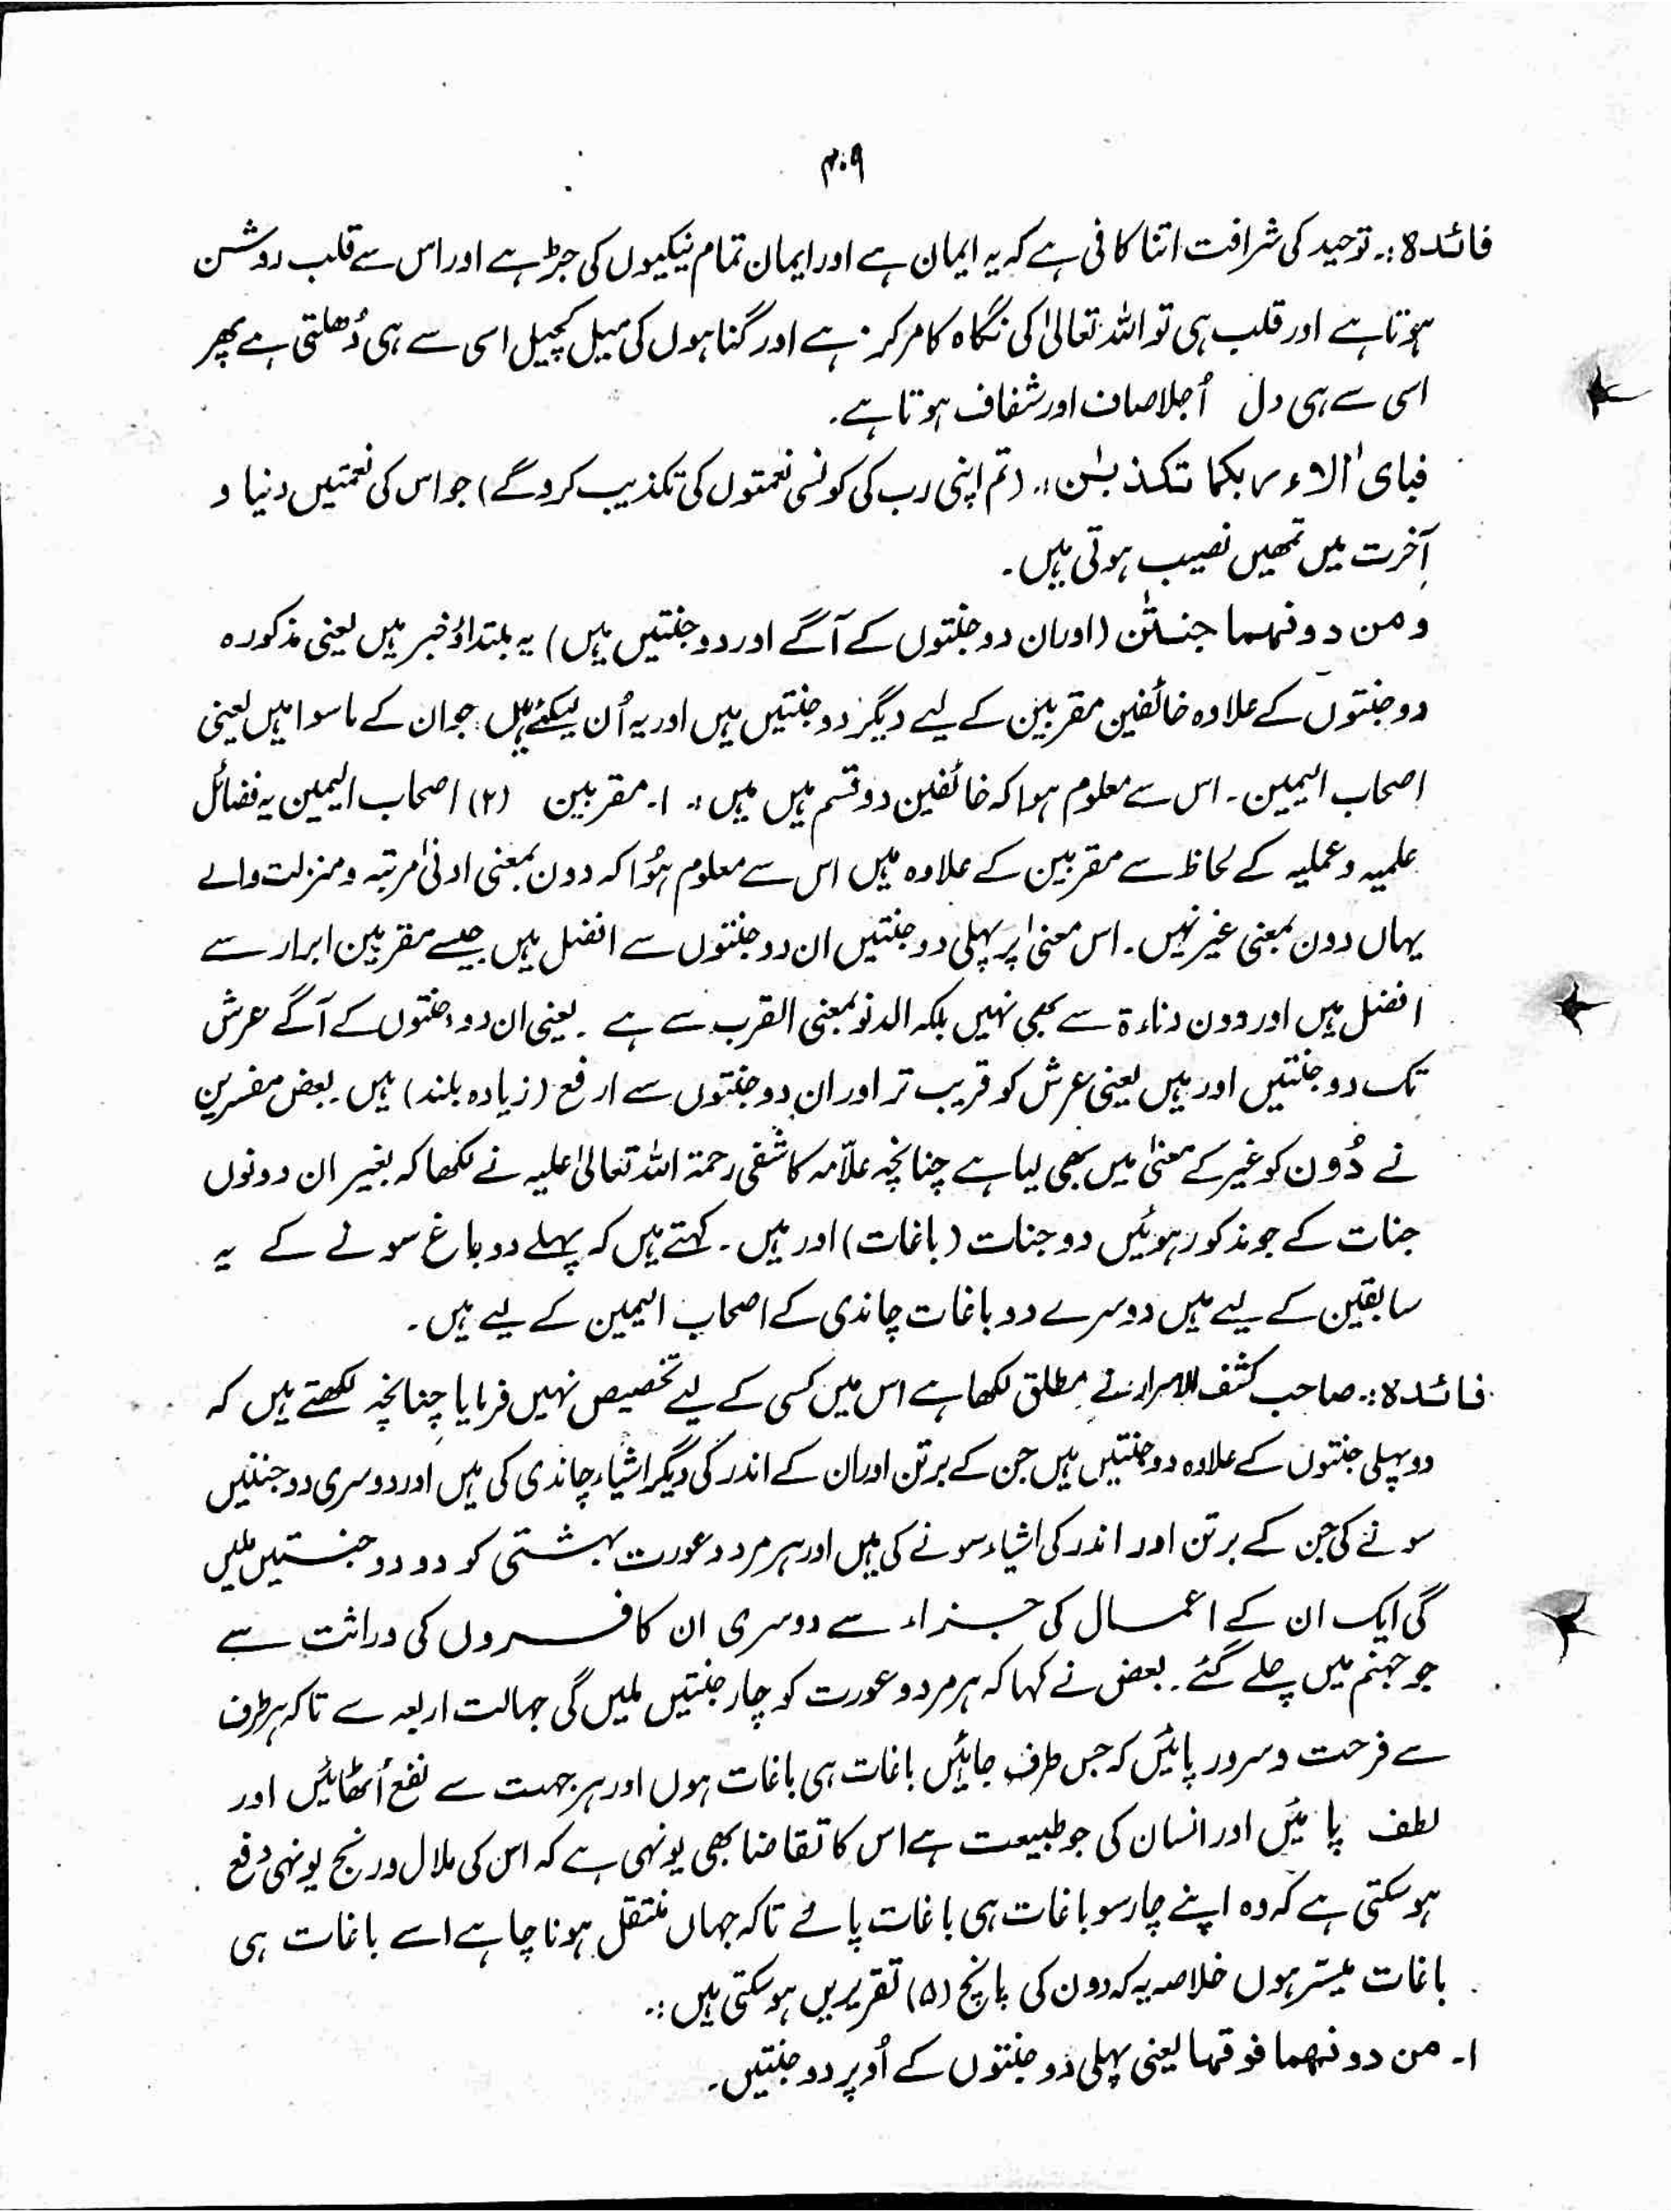 ۴۰۹
فائدہ:۔ توحید کی شرافت اتنا کافی ہے کہ یہ ایمان ہے اور ایمان تمام نیکیوں کی جڑ ہے اور اس سے قلب روشن
ہوتا ہے اور قلب ہی تو اللہ تعالیٰ کی نگاہ کا مرکز ہے اور گناہوں کی میل کچیل اسی سے ہی دُھلتی ہے پھر
اسی سے ہی دل اُجلا صاف اور شفاف ہوتا ہے۔
فبای اٰلاء ربکما تکذبٰن:۔ (تم اپنی رب کی کونسی نعمتوں کی تکذیب کرو گے) جو اس کی نعمتیں دنیا و
آخرت میں تمھیں نصیب ہوتی ہیں۔
ومن دونهما جنتٰن (اور ان دو جنتوں کے آگے اور دو جنتیں ہیں) یہ مبتداؤ خبر ہیں یعنی مذکورہ
دو جنتوں کے علاوہ خائفین مقربین کے لیے دیگر دو جنتیں ہیں اور یہ اُن لیکئے ہیں جو ان کے ماسوا ہیں یعنی
اصحاب الیمین۔ اس سے معلوم ہوا کہ خائفین دو قسم ہیں ہیں :۔ ۱۔ مقربین (۲) اصحاب الیمین یہ فضائل
علمیہ و عملیہ کے لحاظ سے مقربین کے علاوہ ہیں اس سے معلوم ہُوا کہ دون بمعنی ادنیٰ مرتبہ و منزلت والے
یہاں دون بمعنی غیر نہیں۔ اس معنیٰ پر پہلی دو جنتیں ان دو جنتوں سے افضل ہیں جیسے مقربین ابرار سے
افضل ہیں اور دون دناءۃ سے بھی نہیں بلکہ الدنو بمعنی القرب سے ہے۔ یعنی ان دو جنتوں کے آگے عرش
تک دو جنتیں اور ہیں یعنی عرش کو قریب تر اور ان دو جنتوں سے ارفع (زیادہ بلند) ہیں۔ بعض مفسرین
نے دُون کو غیر کے معنیٰ میں بھی لیا ہے چنانچہ علّامہ کاشفی رحمۃ اللہ تعالیٰ علیہ نے لکھا کہ بغیر ان دونوں
جنات کے جو مذکور ہوئیں دو جنات (باغات) اور ہیں۔ کہتے ہیں کہ پہلے دو باغ سونے کے یہ
سابقین کے لیے ہیں دوسرے دو باغات چاندی کے اصحاب الیمین کے لیے ہیں۔
فائدہ:۔ صاحب کشف الاسرار نے مطلق لکھا ہے اس میں کسی کے لیے تخصیص نہیں فرمایا چنانچہ لکھتے ہیں کہ
دو پہلی جنتوں کے علاوہ دو جنتیں ہیں جن کے برتن اور ان کے اندر کی دیگر اشیاء چاندی کی ہیں اور دوسری دو جنتیں
سونے کی جن کے برتن اور اندر کی اشیاء سونے کی ہیں اور ہر مرد و عورت بہشتی کو دو دو جنتیں ملیں
گی ایک ان کے اعمال کی جزاء سے دوسری ان کافروں کی وراثت سے
جو جہنم میں چلے گئے۔ بعض نے کہا کہ ہر مرد و عورت کو چار جنتیں ملیں گی جہالت اربعہ سے تاکہ ہر طرف
سے فرحت و سرور پائیں کہ جس طرف جائیں باغات ہی باغات ہوں اور ہر جہت سے نفع اُٹھائیں اور
لطف پائیں اور انسان کی جو طبیعت ہے اس کا تقاضا بھی یونہی ہے کہ اس کی ملال و رنج یونہی دفع
ہو سکتی ہے کہ وہ اپنے چار سو باغات ہی باغات پائے تاکہ جہاں منتقل ہونا چاہے اسے باغات ہی
باغات میسّر ہوں خلاصہ یہ کہ دون کی پانچ (۵) تقریریں ہو سکتی ہیں :۔
۱۔ من دونهما فوقہا یعنی پہلی دو جنتوں کے اُوپر دو جنتیں۔